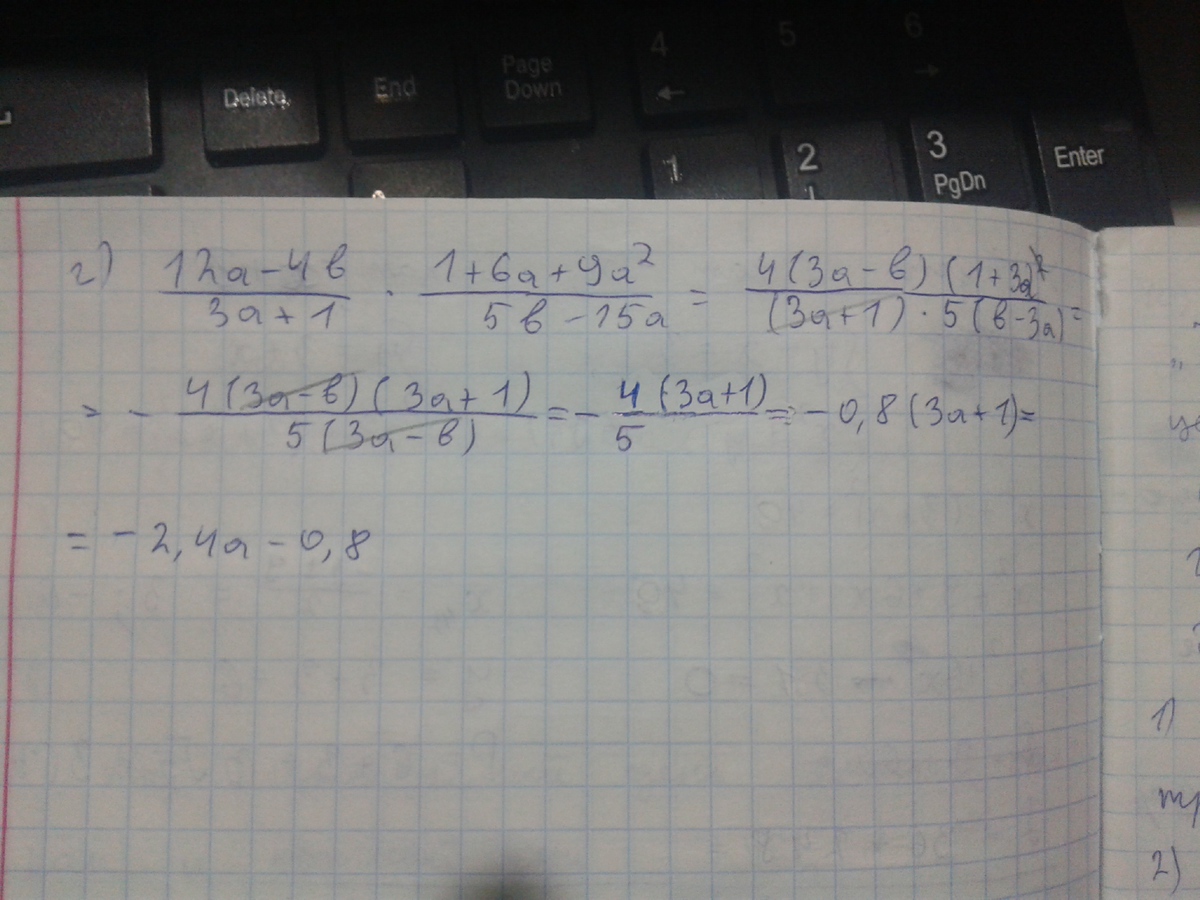 4 5 6
← →
Delete End Page Down
1 2 3 PgDn Enter
г) (12a-4в)/(3a+1) · (1+6a+9a²)/(5в-15a) = (4(3a-в)(1+3a)²)/((3a+1)·5(в-3a)) =
= - (4(3a-в)(3a+1))/(5(3a-в)) = - (4(3a+1))/5 = -0,8(3a+1)=
= -2,4a-0,8
1)
2)